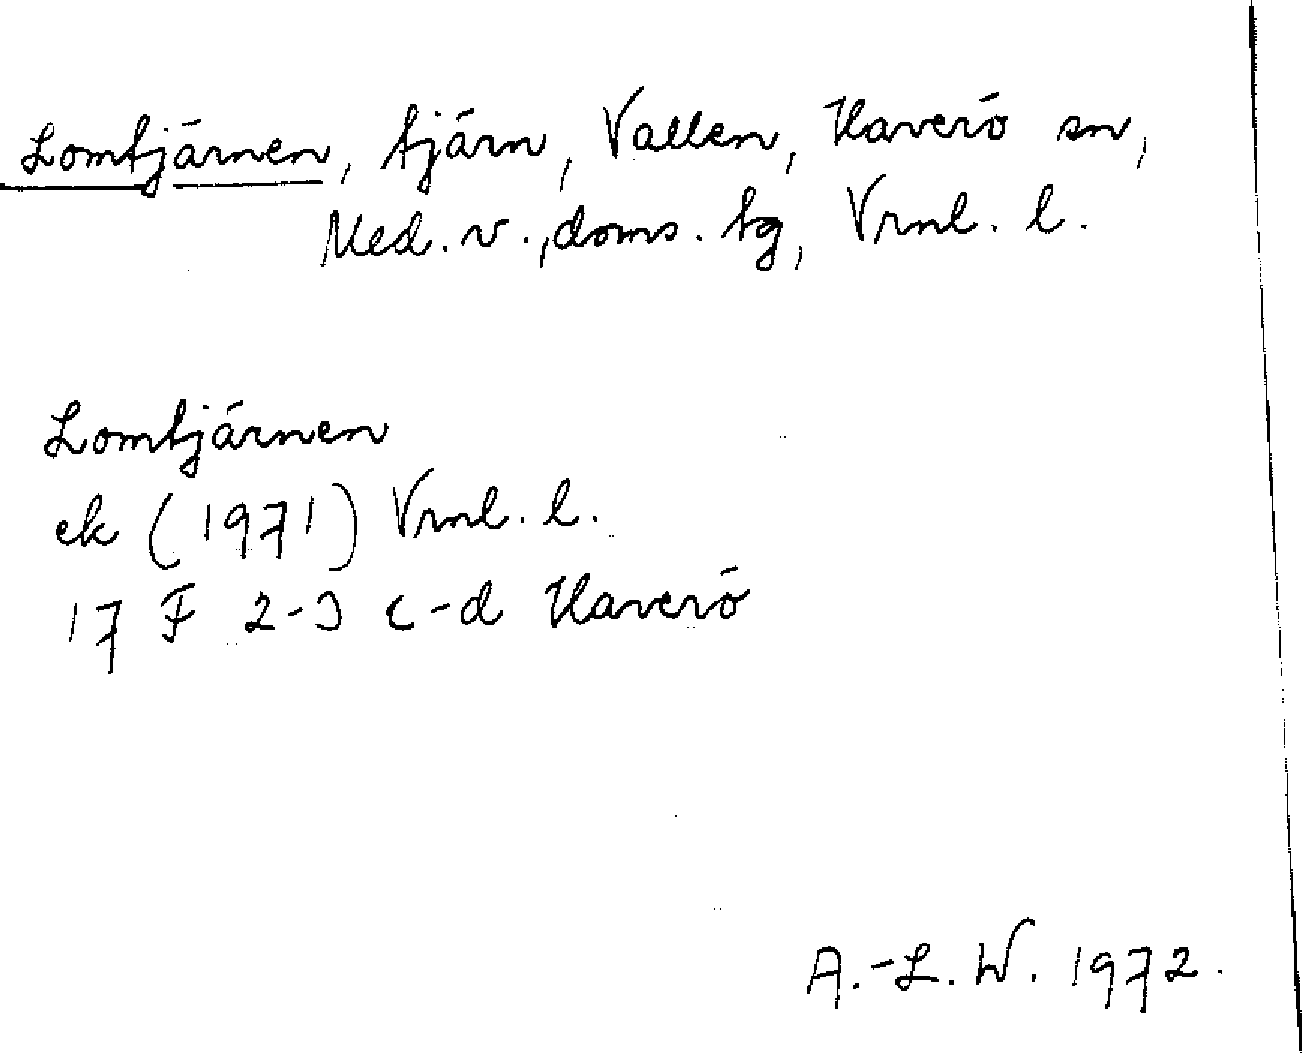 Lomtjärnen, tjärn, Vallen, Haverö sn,
Med. v., doms. tg, Vrnl. l.
Lomtjärnen
ek (1971) Vrnl. l.
17 F 2-3 c-d Haverö
A.-L. W. 1972.